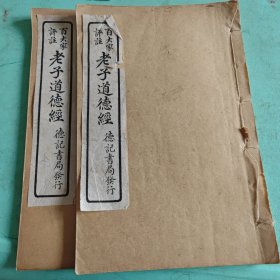 百大家
評註
老子道德經
德記書局發行
百大家
評註
老子道德經
德記書局發行